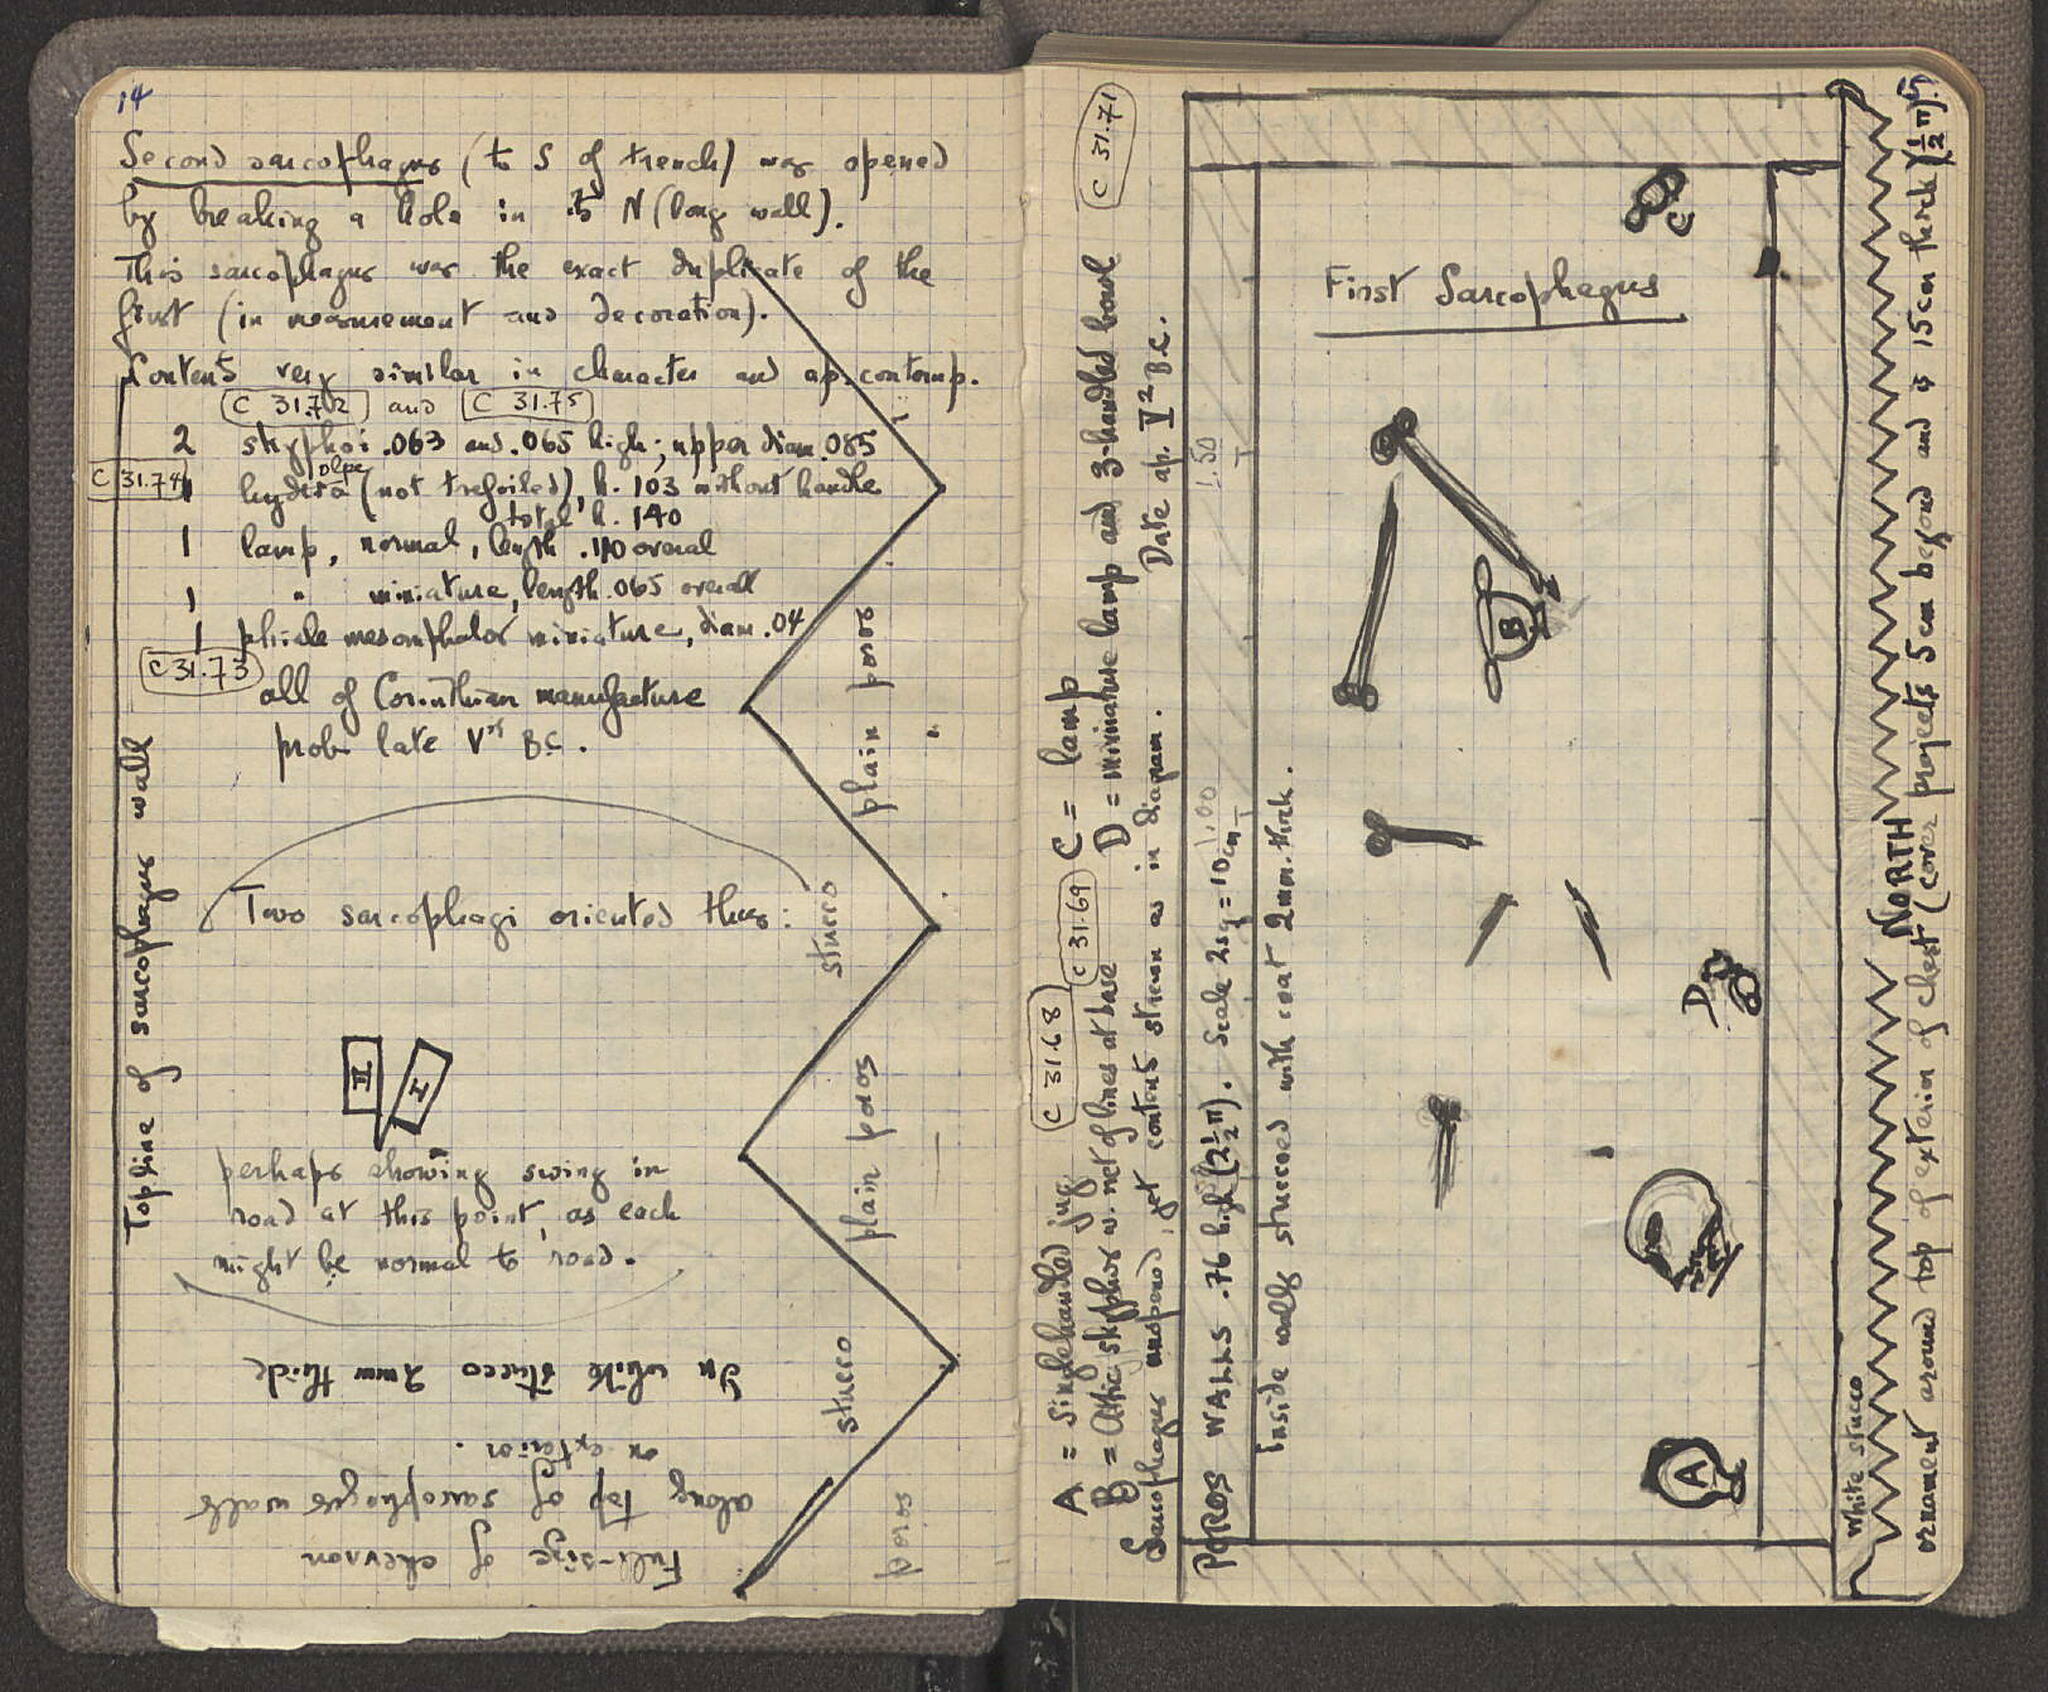 14
Second sarcophagus (to S of trench) was opened
by breaking a hole in its N (long wall).
This sarcophagus was the exact duplicate of the
first (in measurement and decoration).
Contents very similar in character and ap. contemp.
C 31.72 and C 31.75
2 skyphoi .063 and .065 high; upper diam .085
olpe
C 31.74 1 hydria (not trefoiled), h. 103 without handle
total h. 140
1 lamp, normal, length .110 overal
1 " miniature, length .065 overall
1 phiale mesomphalos miniature, diam .04
C 31.73
all of Corinthian manufacture
prob late Vth B.C.
Two sarcophagi oriented thus:
II
I
perhaps showing swing in
road at this point, as each
might be normal to road.
Full-size of chevron
along top of sarcophagus walls
on exterior.
In white stucco 2mm thick
Top line of sarcophagus wall
poros
stucco
plain poros
stucco
plain poros
C 31.71
C 31.68
C 31.69
A = Single handled jug C = lamp
B = Attic skyphos w. net of lines at base D = miniature lamp and 3-handled bowl
Sarcophagus unopened, yet contents strewn as in diagram. Date ap. V² B.C.
POROS WALLS .76 high (2½ π). Scale 2 sq = 10 cm
1.00
1.50
Inside walls stuccoed with coat 2mm. thick.
First Sarcophagus
A
B
C
D
White stucco
NORTH
ornament around top of exterior of chest (cover projects 5 cm beyond and is 15 cm thick (½ π).
15